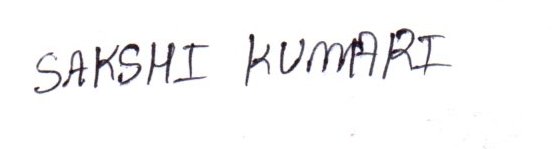 SAKSHI KUMARI